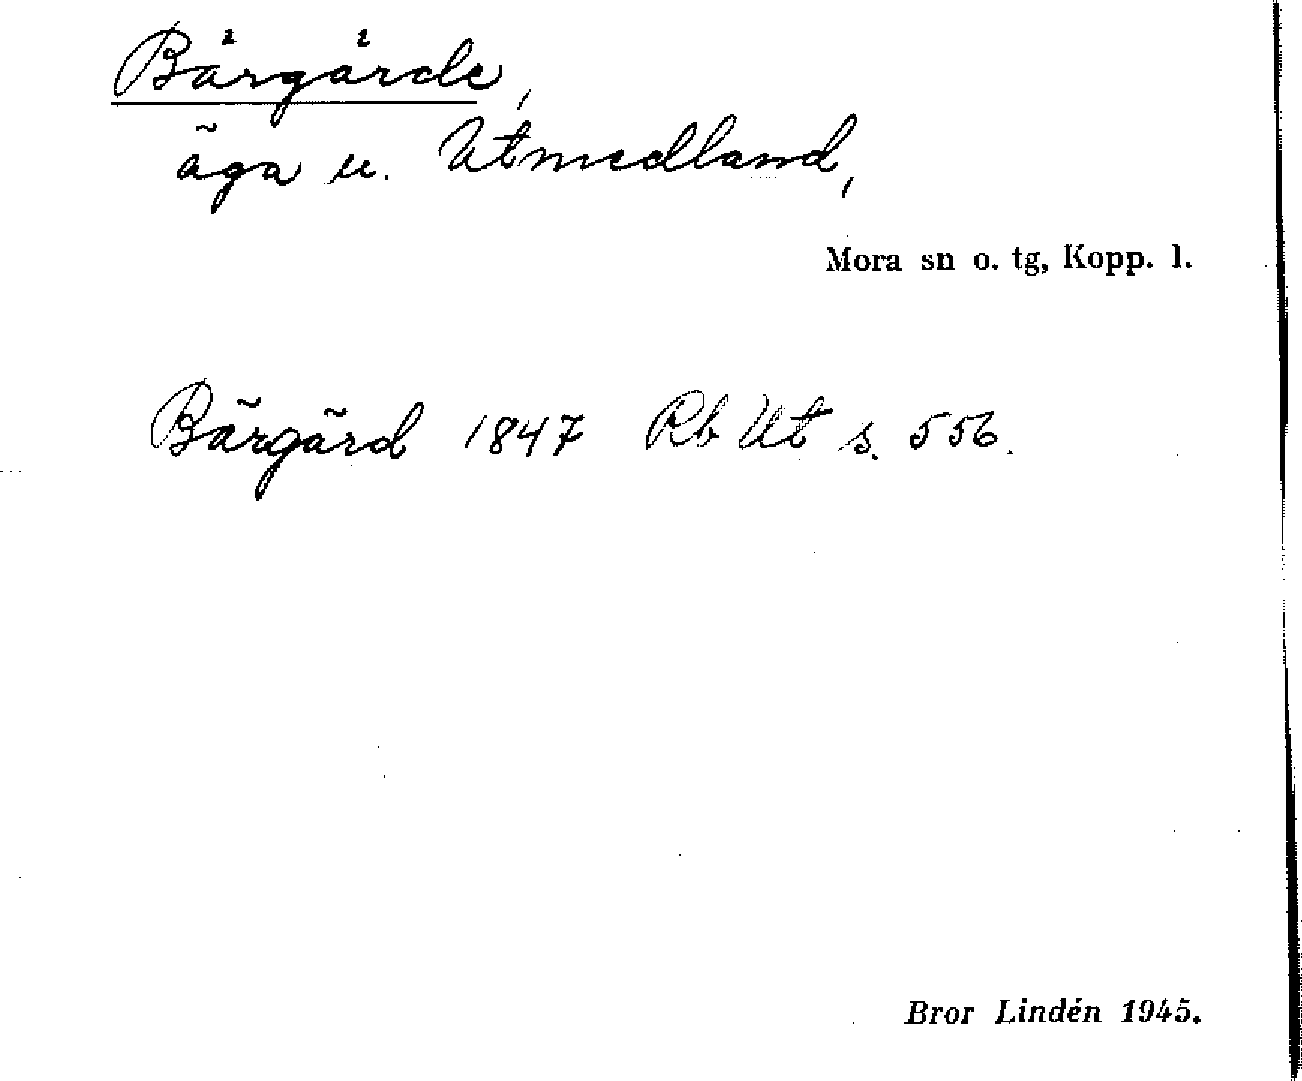 Bärgärde,
äga u. Utmedland,
Mora sn o. tg, Kopp. l.
Bärgärd 1847 Rb Ut s. 556.
Bror Lindén 1945.